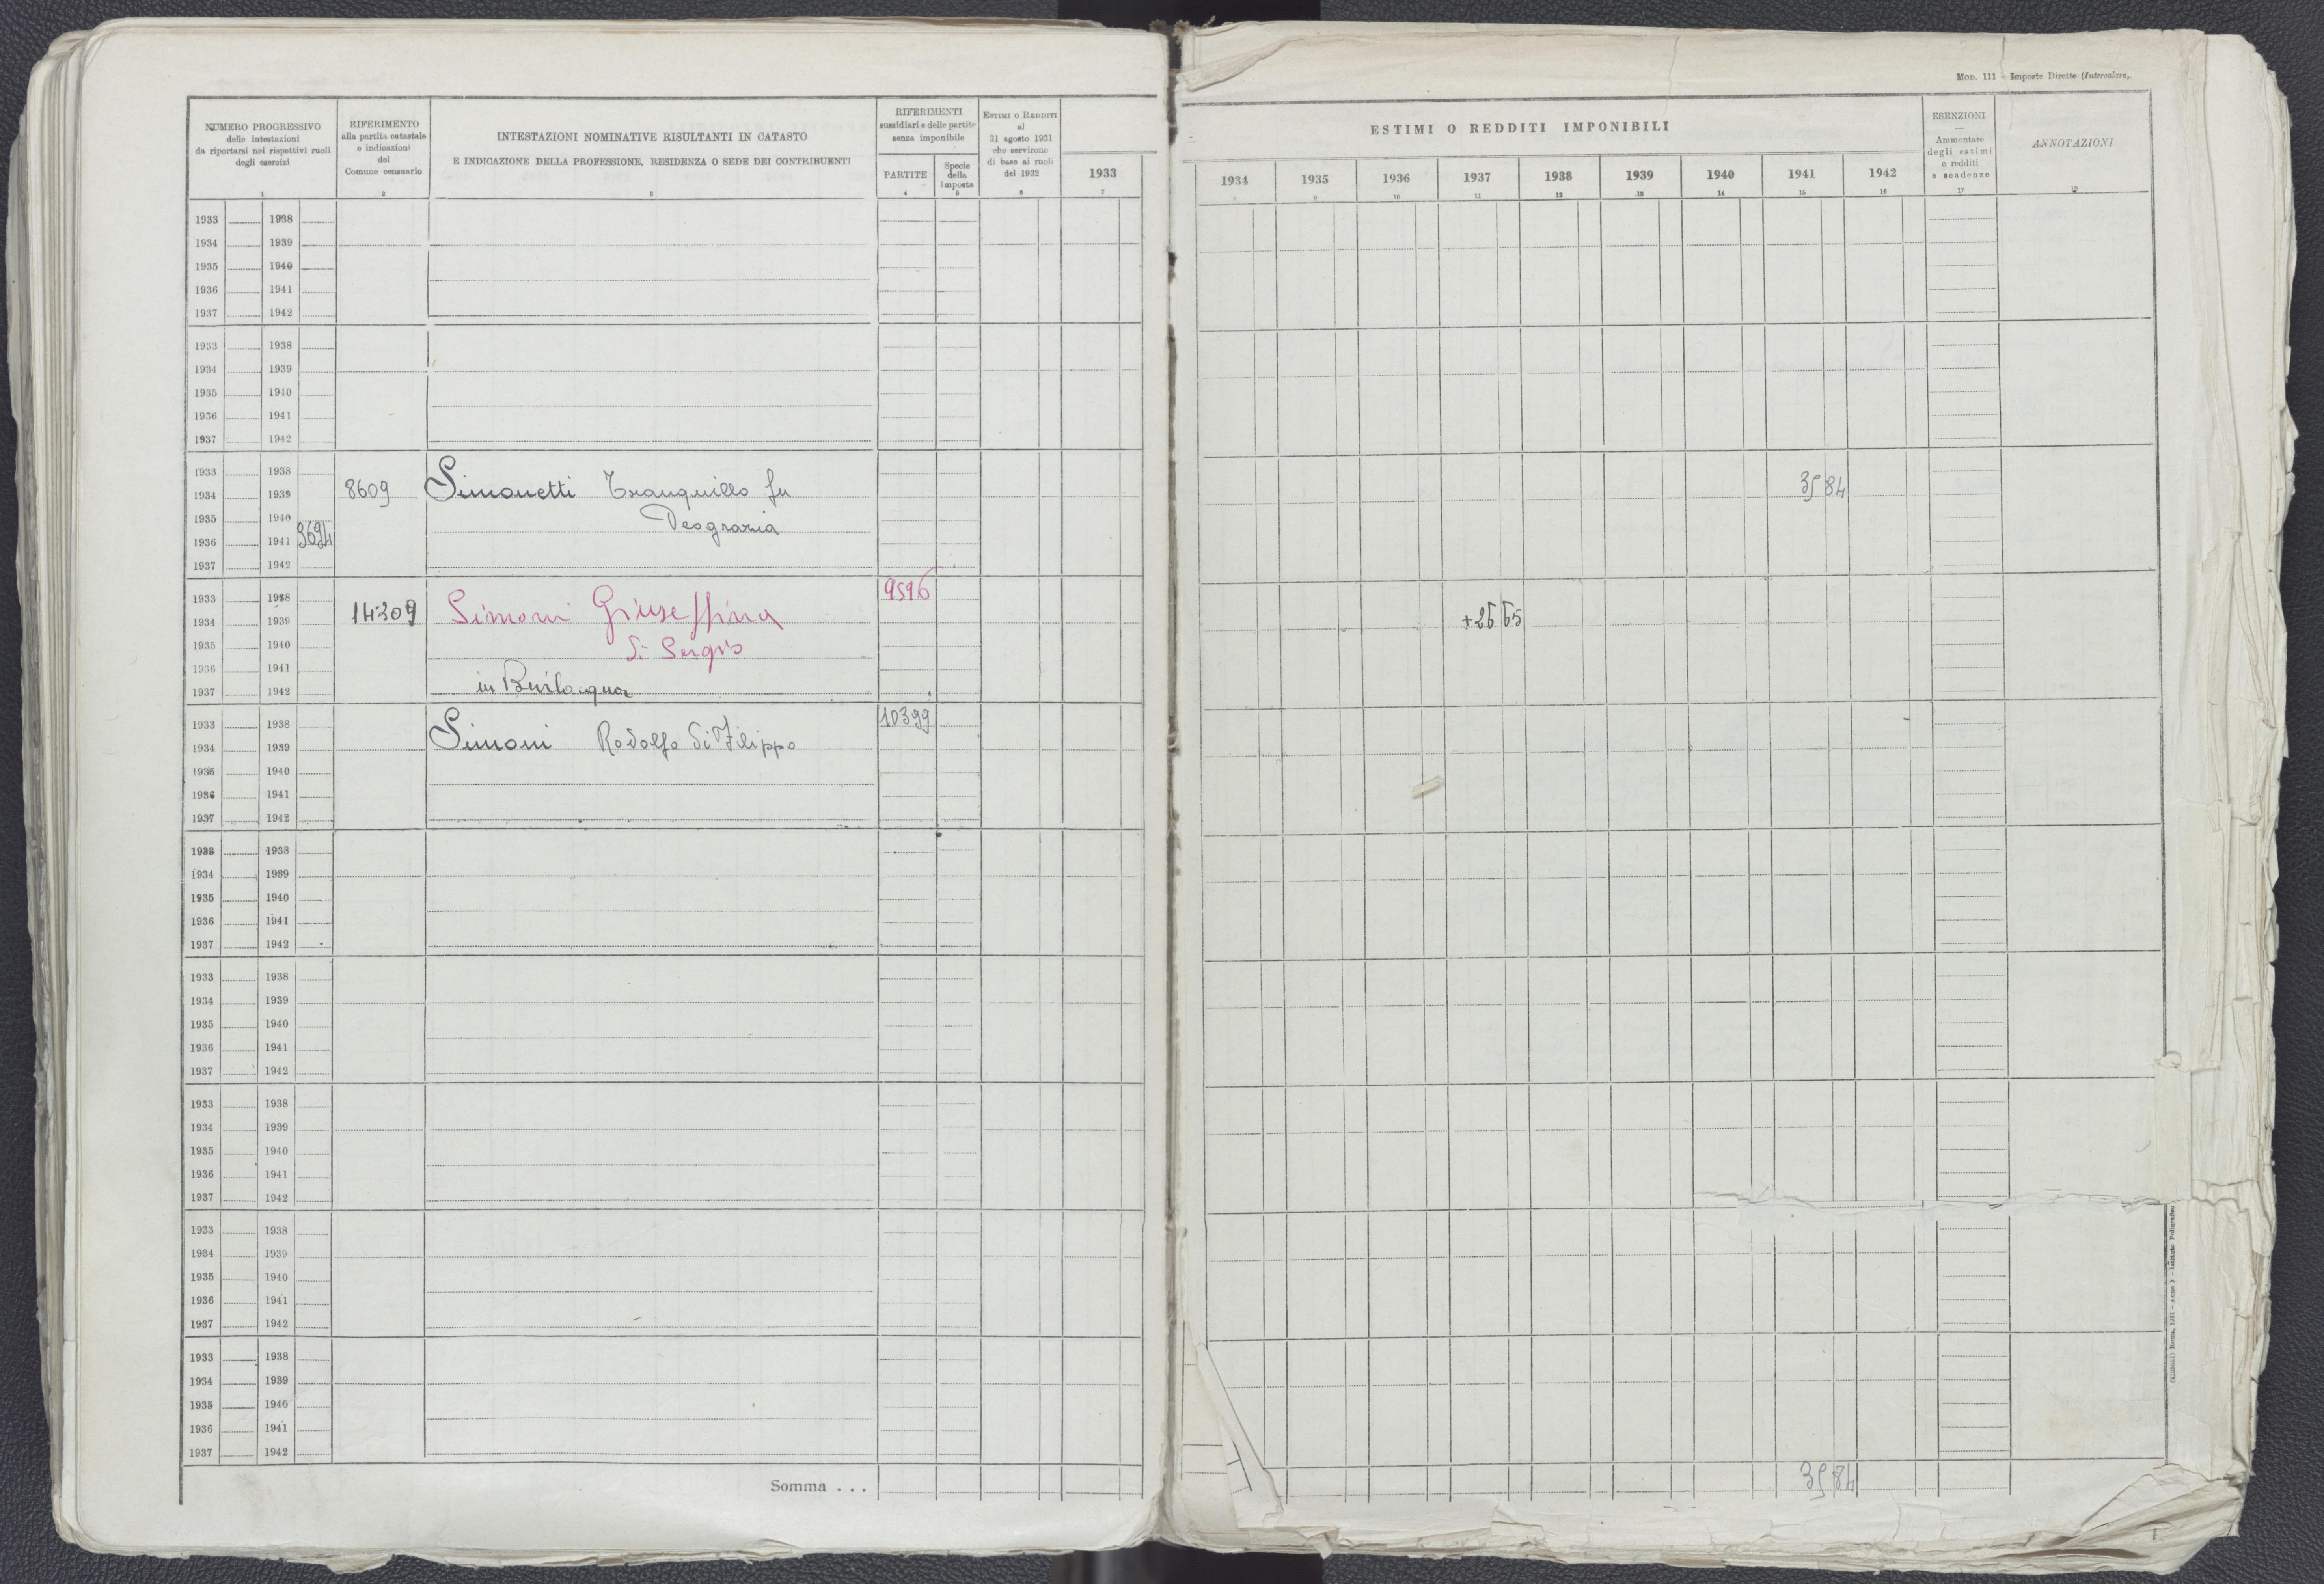 Mod. 111 - Imposte Dirette (Intercalare).
NUMERO PROGRESSIVO
delle intestazioni
da riportarsi nei rispettivi ruoli
degli esercizi
1
RIFERIMENTO
alla partita catastale
e indicazioni
del
Comune censuario
2
INTESTAZIONI NOMINATIVE RISULTANTI IN CATASTO
E INDICAZIONE DELLA PROFESSIONE, RESIDENZA O SEDE DEI CONTRIBUENTI
3
RIFERIMENTI
sussidiari e delle partite
senza imponibile
PARTITE
4
Specie
della
imposta
5
ESTIMI O REDDITI
al
31 agosto 1931
che servirono
di base ai ruoli
del 1932
6
1933
7
ESTIMI O REDDITI IMPONIBILI
1934 1935 1936 1937 1938 1939 1940 1941 1942
8 9 10 11 12 13 14 15 16
ESENZIONI
—
Ammontare
degli estimi
o redditi
e scadenze
17
ANNOTAZIONI
18
1933 1938
1934 1939
1935 1940
1936 1941
1937 1942
1933 1938
1934 1939
1935 1940
1936 1941
1937 1942
1933 1938
1934 1939 8609 Simonetti Tranquillo fu 35 84
1935 1940 Deograzia
1936 1941 3694
1937 1942
1933 1938 9596
1934 1939 14309 Simoni Giuseppina +26 65
1935 1940 di Sergio
1936 1941
1937 1942 in Bevilacqua
1933 1938 10399
1934 1939 Simoni Rodolfo di Filippo
1935 1940
1936 1941
1937 1942
1933 1938
1934 1939
1935 1940
1936 1941
1937 1942
1933 1938
1934 1939
1935 1940
1936 1941
1937 1942
1933 1938
1934 1939
1935 1940
1936 1941
1937 1942
1933 1938
1934 1939
1935 1940
1936 1941
1937 1942
1933 1938
1934 1939
1935 1940
1936 1941
1937 1942
Somma . . . 35 84